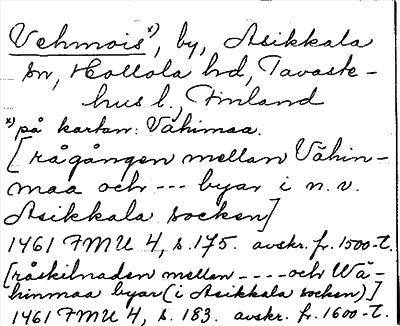 Vehmois*), by, Asikkala
sn, Hollola hd, Tavaste-
hus l., Finland
*) på kartan: Vähimaa.
[rågången mellan Vähin-
maa och --- byar i n.v.
Asikkala socken]
1461 FMU 4, s. 175. avskr. fr. 1500-t.
[råskilnaden mellan ---- och Wä-
hinmaa byar (i Asikkala socken)]
1461 FMU 4, s. 183. avskr. fr. 1600-t.